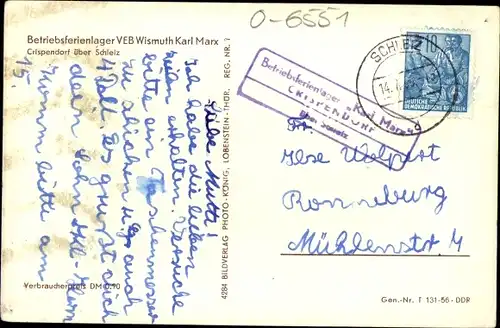 O-6551
Betriebsferienlager VEB Wismuth Karl Marx
Crispendorf über Schleiz
Liebe Mutti!
Ich habe die lieben
Zeilen erhalten. Versuche
bitte ein Taschenmesser
auch
4 Dall. Es grüßt dich
dein Sohn
Komm bitte am
15.
Verbraucherpreis DM 0,10
4284 BILDVERLAG PHOTO-KÖNIG, LOBENSTEIN-THÜR. REG. NR. 7
SCHLEIZ
14.
10
DEUTSCHE
DEMOKRATISCHE REPUBLIK
Betriebsferienlager „Karl Marx"
CRISPENDORF
über Schleiz
Fr.
Ilse Wolpert
Ronneburg
Mühlenstr. 4
Gen.-Nr. T 131-56-DDR